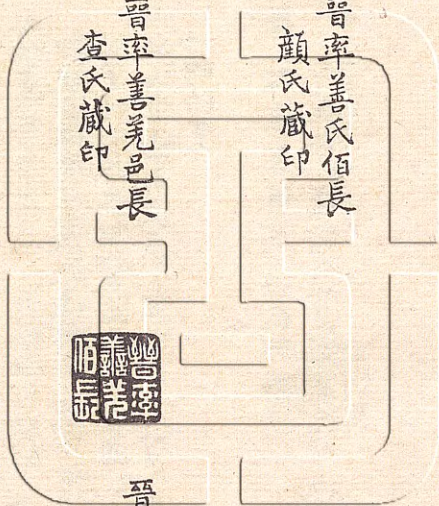 晉率善氐佰長
顏氏藏印
晉率善羌邑長
查氏藏印
晉率
善羌
佰長
晉